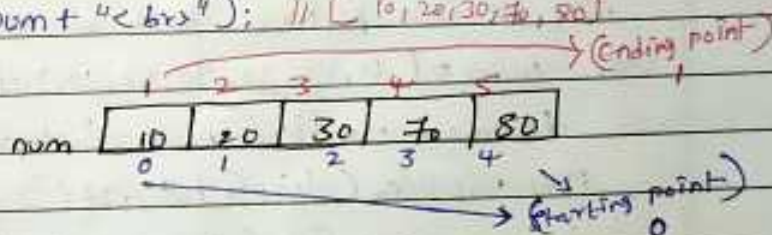 num + "<br>"); // [10, 20, 30, 70, 80]
(ending point)
1 2 3 4 5 1
num 10 20 30 70 80
0 1 2 3 4
(starting point)
0